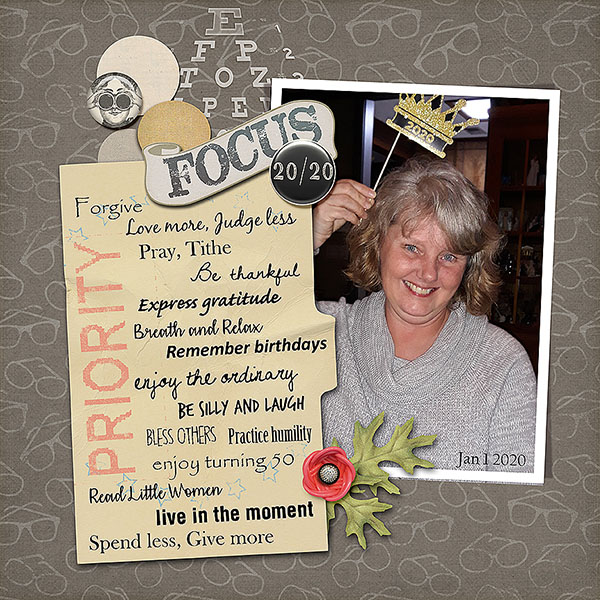 E
F P
T O Z
L P E
1
2
3
FOCUS
20/20
2020
PRIORITY
Forgive
Love more, Judge less
Pray, Tithe
Be thankful
Express gratitude
Breath and Relax
Remember birthdays
enjoy the ordinary
BE SILLY AND LAUGH
BLESS OTHERS Practice humility
enjoy turning 50
Read Little Women
live in the moment
Spend less, Give more
Jan 1 2020